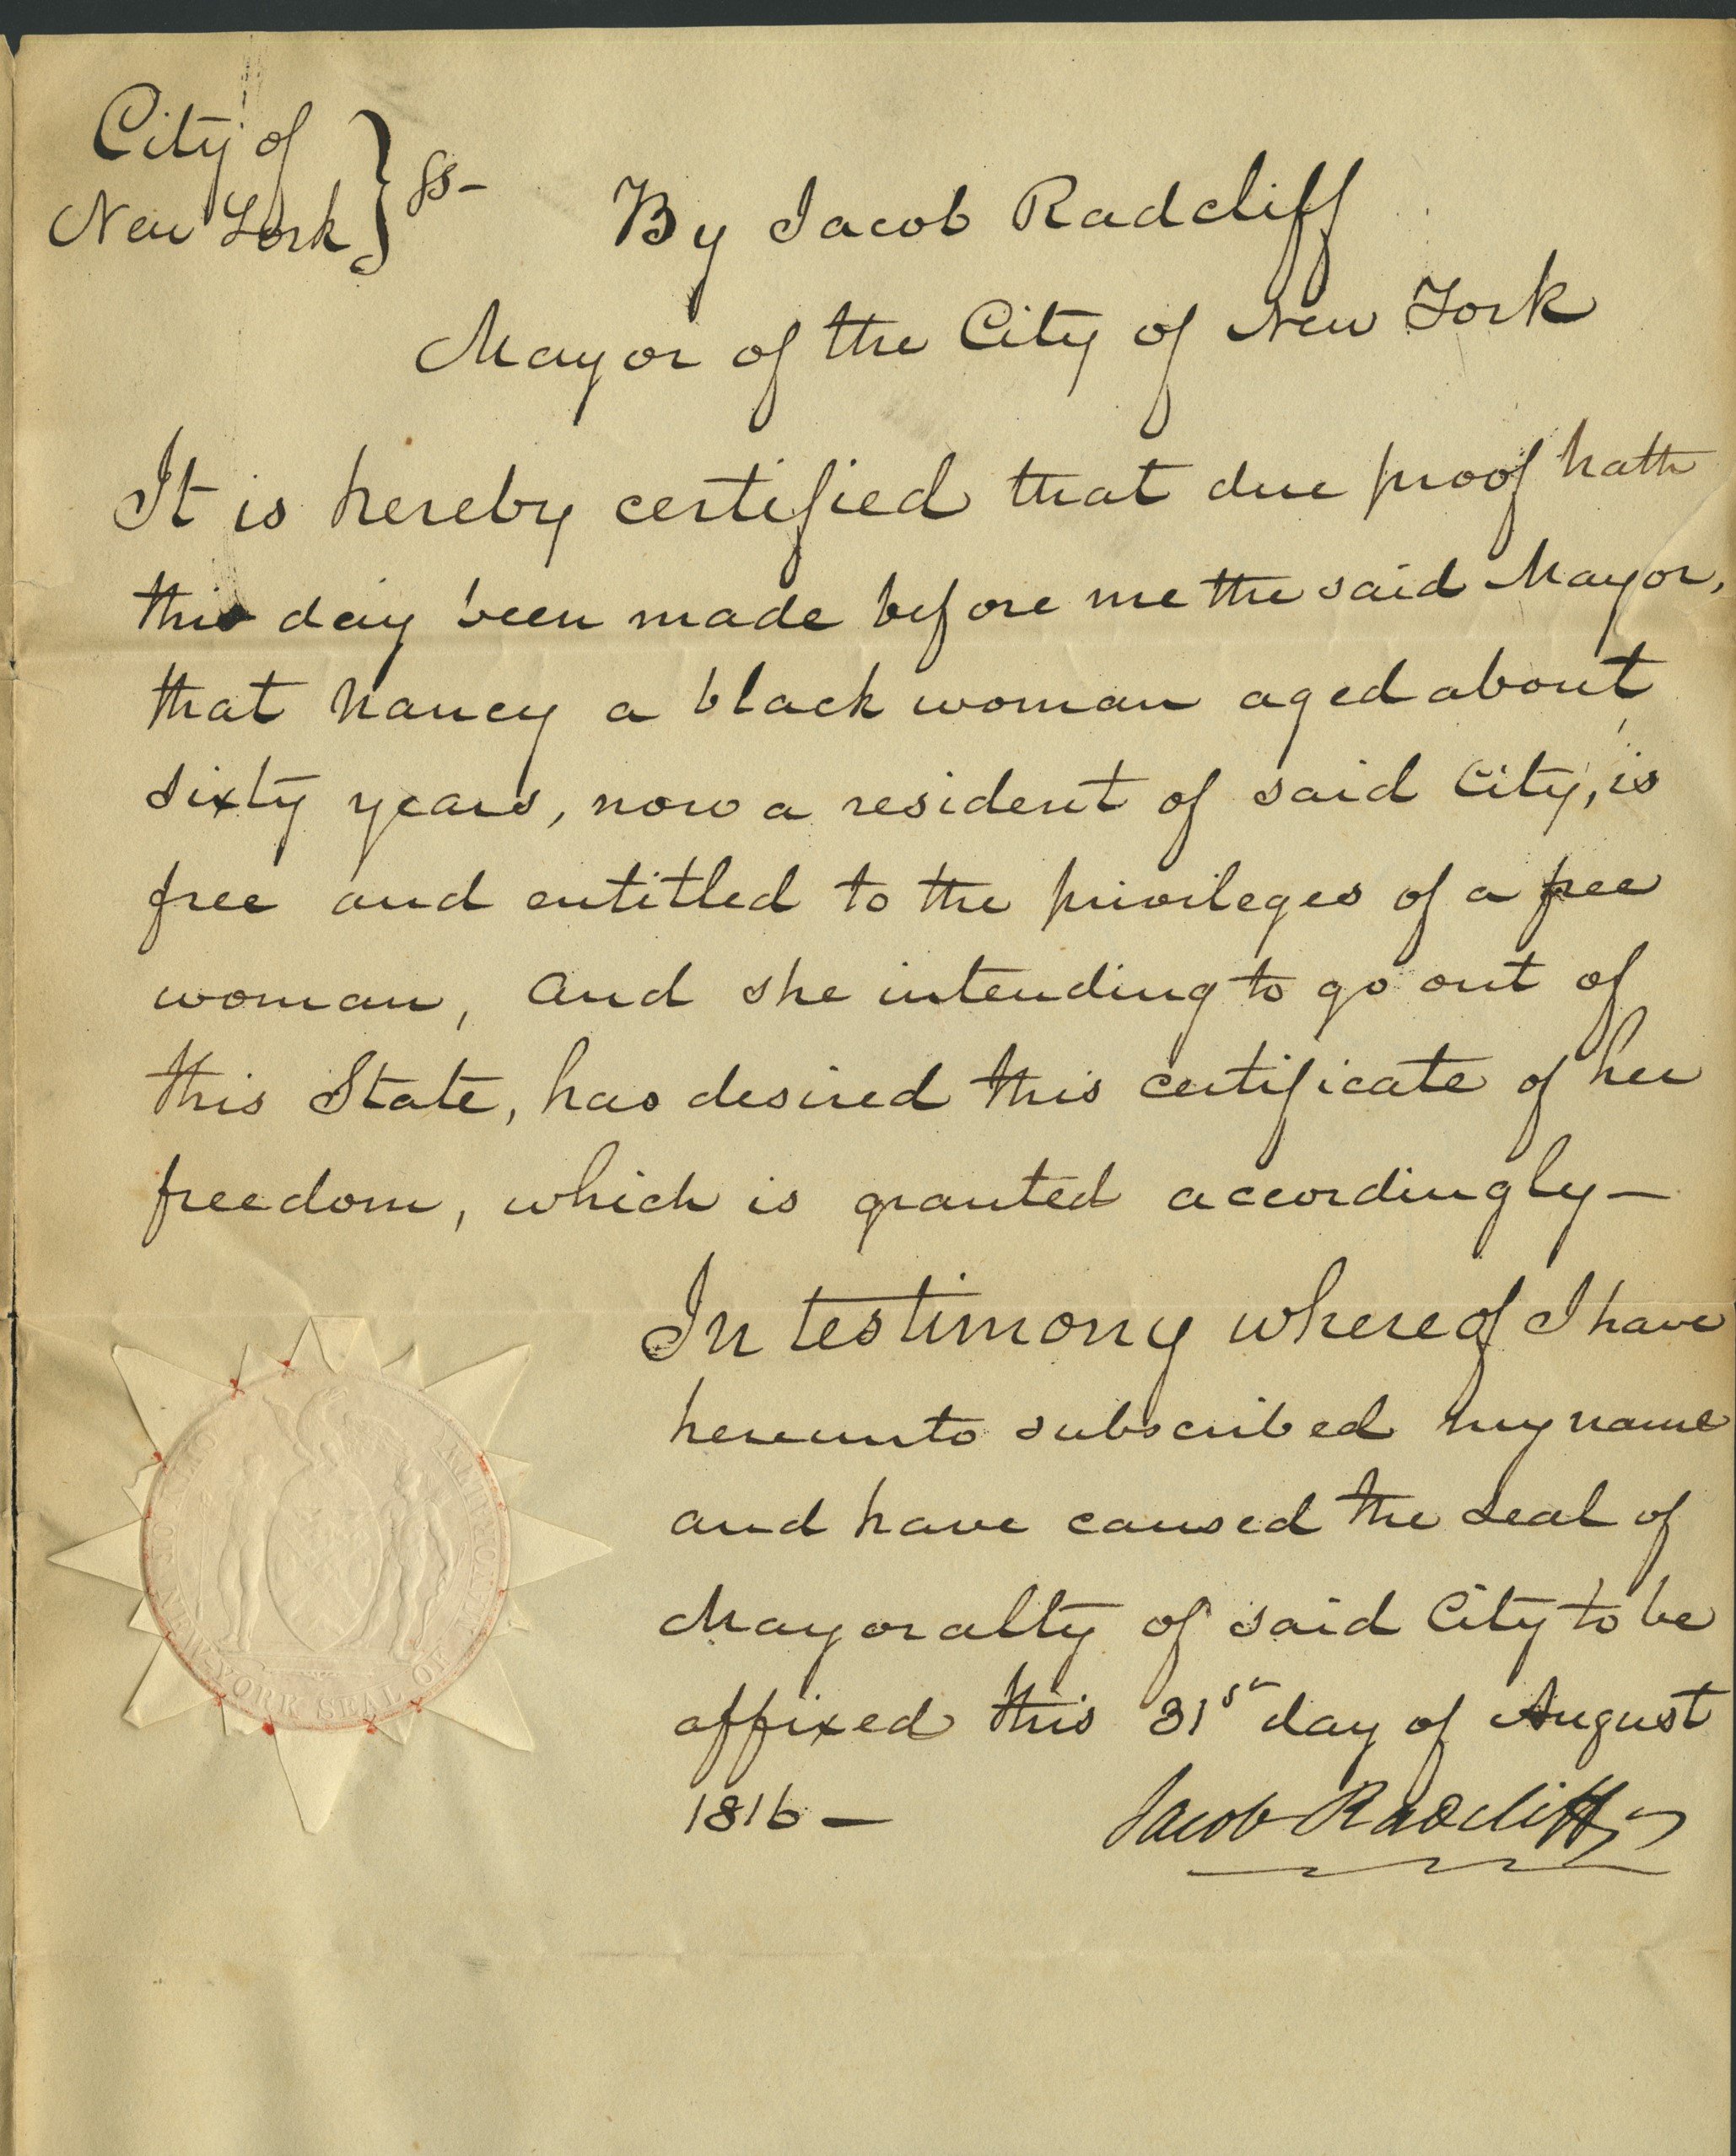 City of
New York } ss-
By Jacob Radcliff
Mayor of the City of New York
It is hereby certified that due proof hath
this day been made before me the said Mayor,
that Nancy a black woman aged about
sixty years, now a resident of said City, is
free and entitled to the privileges of a free
woman, and she intending to go out of
this State, has desired this certificate of her
freedom, which is granted accordingly—
In testimony whereof I have
hereunto subscribed my name
and have caused the seal of
Mayoralty of said City to be
affixed this 31st day of August
1816—
Jacob Radcliff
OF NEW-YORK SEAL OF